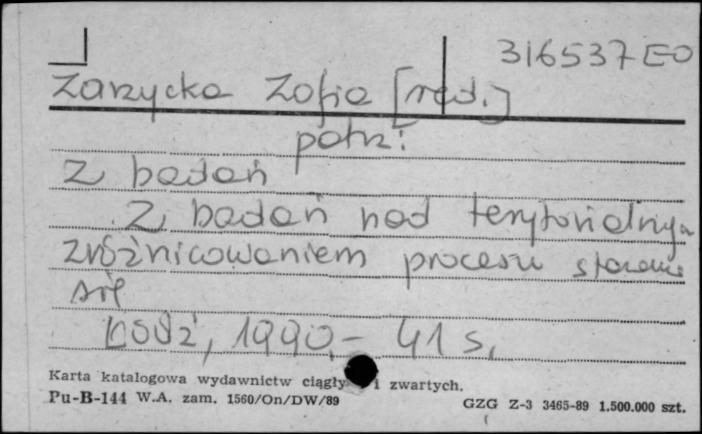 316537 EO
Zarzycka Zofia [red.]
patrz:
Z badań
Z badań nad terytorialnym
zróżnicowaniem procesu starzenia
się
Łódź, 1990.- 41 s.
Karta katalogowa wydawnictw ciągły i zwartych.
Pu-B-144 W.A. zam. 1560/On/DW/89
GZG Z-3 3465-89 1.500.000 szt.